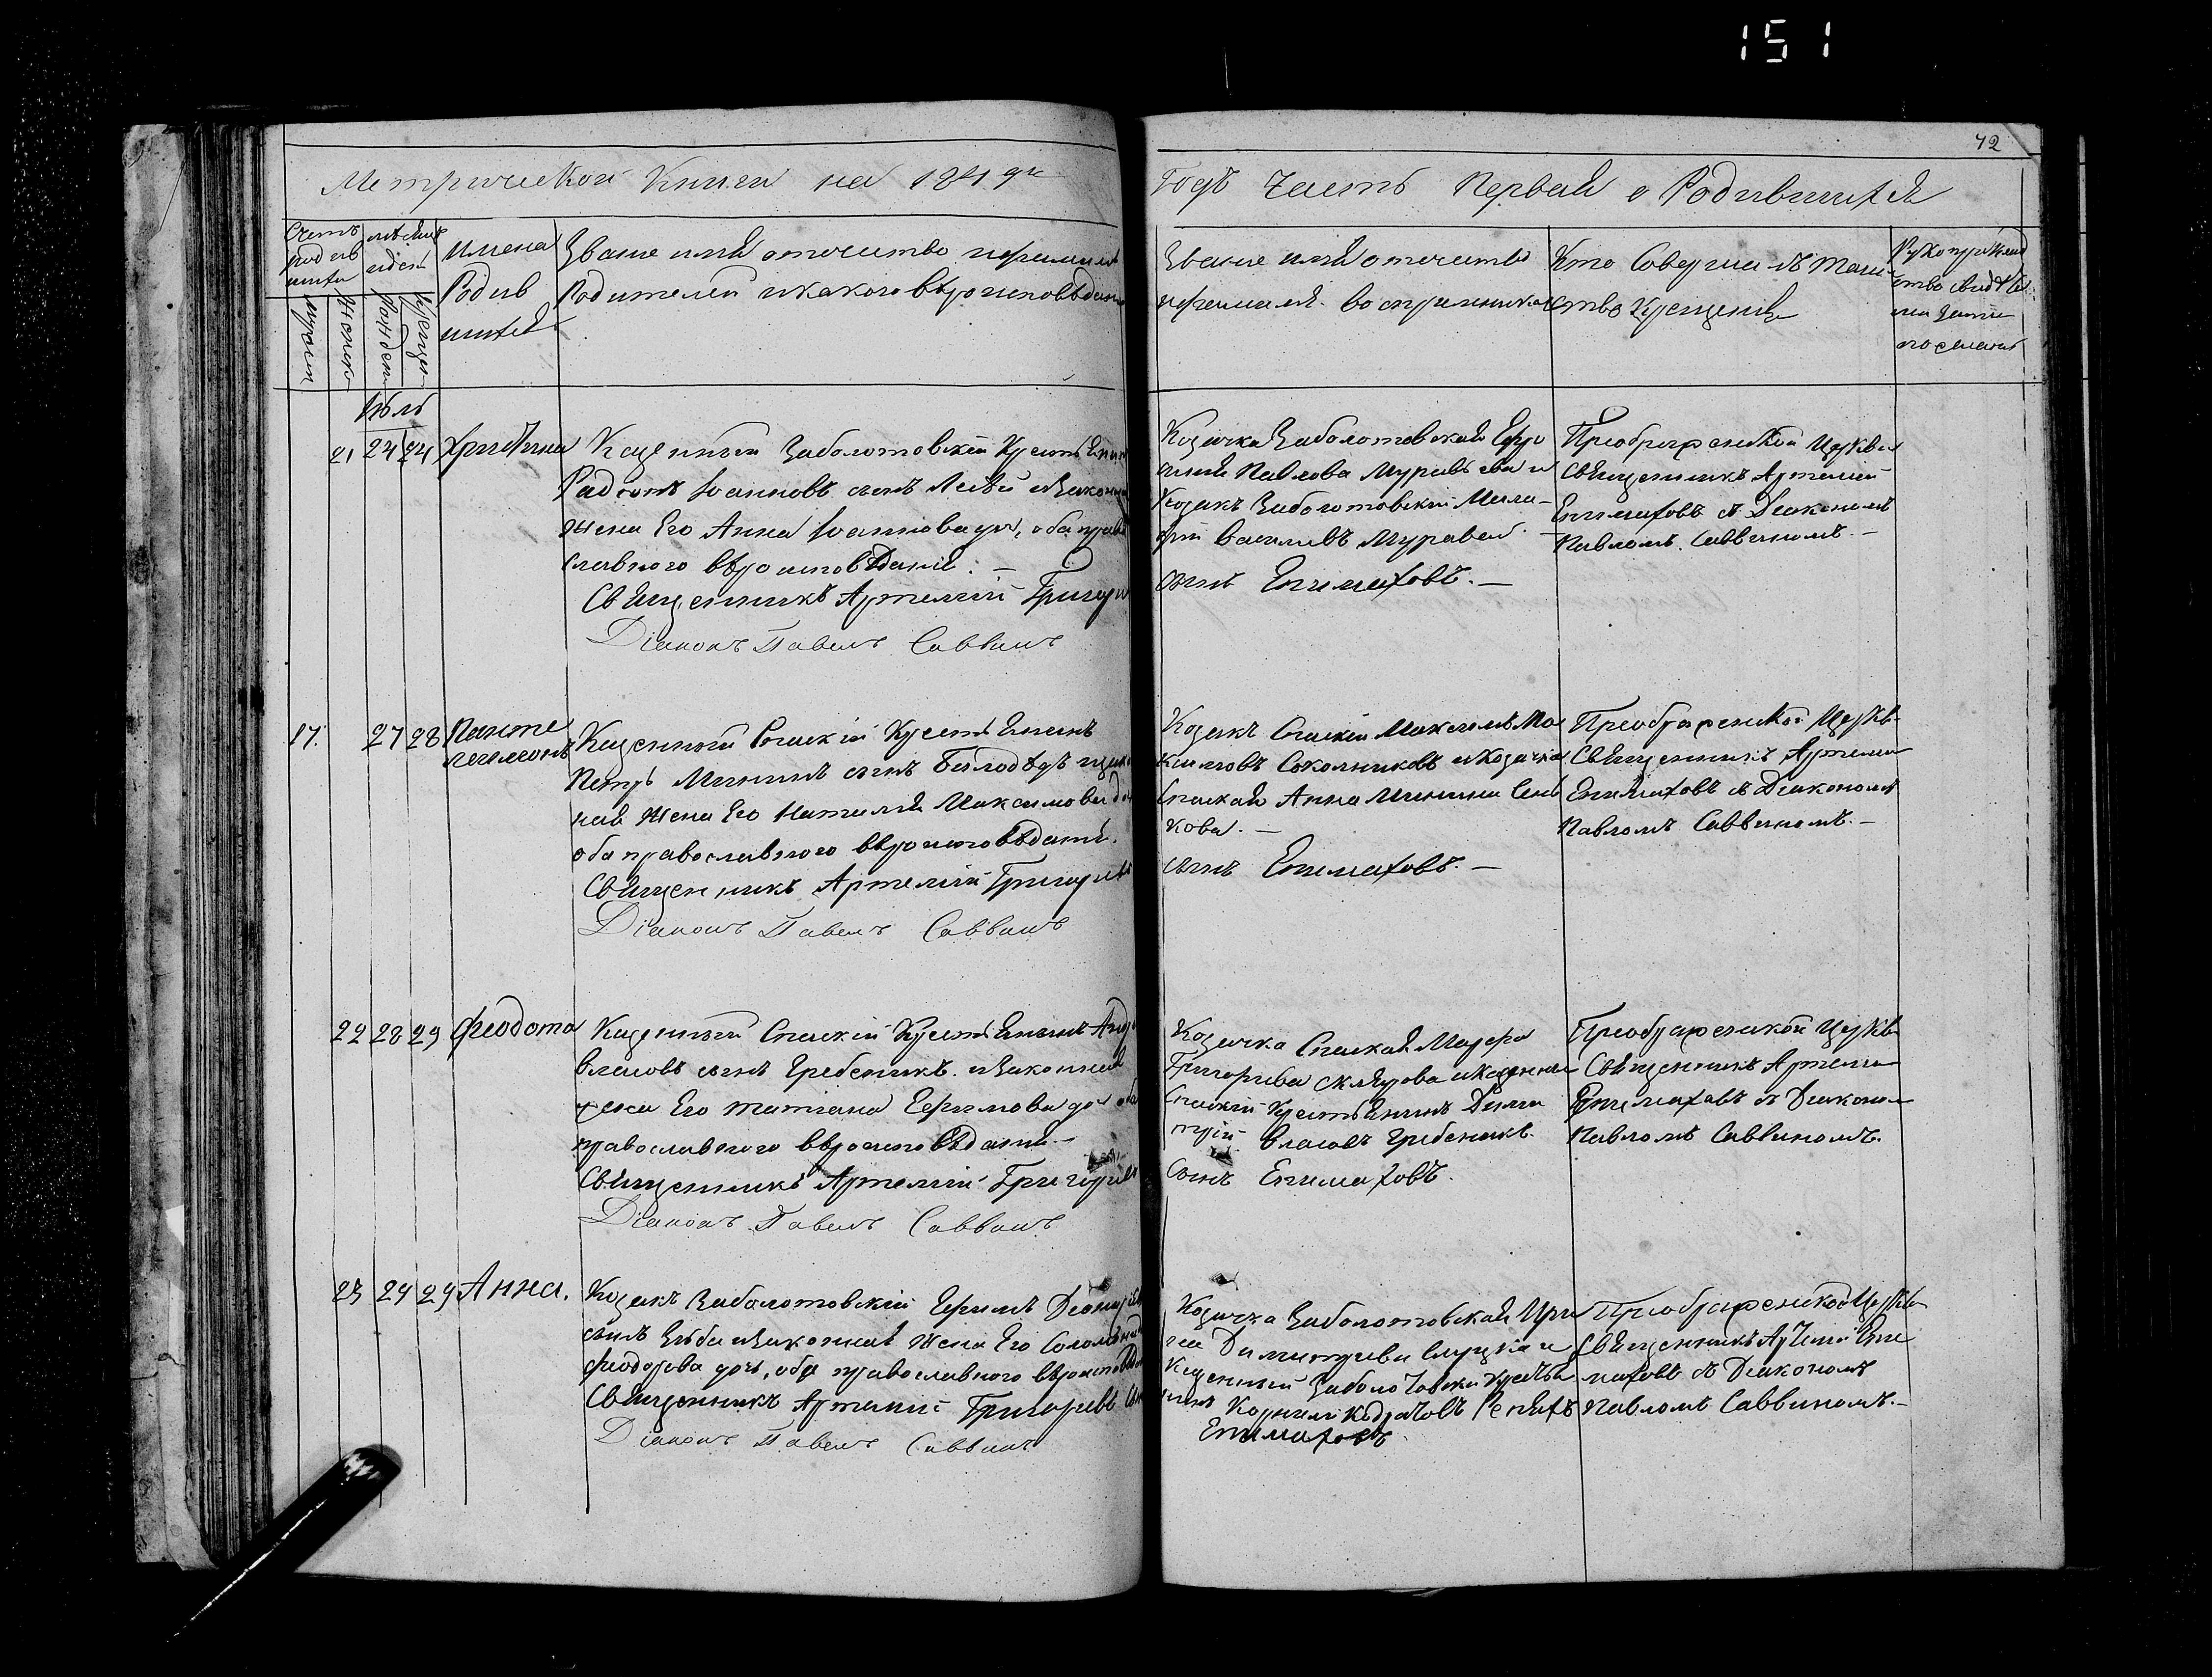 151
72
Метрической Книги на 1841 Годъ Часть Первая о Родившихся
Счетъ родившихся
Мужеска
Женска
месяцъ и день
Рожденія
Крещенія
Имена Родившихся
Званіе имя отчество и фамилія
Родителей и какого вѣроисповѣданія
Званіе имя отчество
и фамилія восприемниковъ
Кто Совершалъ Таин-
ство Крещенія
Рукоприклад
ство свидѣте
лей
по желанію
Іюль
21 24 24 Христина
Казенный Заболотовскій Крестьянинъ
Іоанновъ сынъ и законная
жена Его Анна Іоаннова дочь, оба право
славного вѣроисповѣданія. —
Священникъ Артемій Григорьевъ
Діаконъ Павелъ Саввинъ
Козачка Заболотовская Евфро
синія Павлова Муравьева и
Козакъ Заболотовскій
Василіевъ Муравей. —
сынъ Епимаховъ. —
Преображенской Церкви
Священникъ Артемій
Епимаховъ съ Діакономъ
Павломъ Саввиномъ. —
17. 27 28 Панте
леимонъ
Казенный Спаскій Крестьянинъ
Петръ Мининъ сынъ Билодѣдъ и закон
ная жена Его Наталія Максимова дочь
оба православного вѣроисповѣданія.
Священникъ Артемій Григорьевъ
Діаконъ Павелъ Саввинъ
Козакъ Спаскій Максимъ Ма
ксимовъ Сокольниковъ и Козачка
Спаская Анна Минина Сень
кова. —
сынъ Епимаховъ. —
Преображенской Церкви
Священникъ Артемій
Епимаховъ съ Діакономъ
Павломъ Саввиномъ. —
22 28 29 Феодота
Казенный Спаскій Крестьянинъ
Власовъ сынъ Гребеникъ. и законная
жена Его Татіана Ефимова дочь оба
православного вѣроисповѣданія. —
Священникъ Артемій Григорьевъ
Діаконъ Павелъ Саввинъ
Козачка Спаская Марфа
Григорьева Склярова и казенный
Спаскій Крестьянинъ Дими
трій Власовъ Гребеникъ.
Сынъ Епимаховъ.
Преображенской Церкви
Священникъ Артемій
Епимаховъ съ Діакономъ
Павломъ Саввиномъ.
23 29 29 Анна.
Козакъ Заболотовскій Ефимъ
сынъ и законная жена Его
Феодорова дочь, оба православного вѣроисповѣданія
Священникъ Артемій Григорьевъ сынъ
Діаконъ Павелъ Саввинъ
Козачка Заболотовская Ири
на Димитріева и
Казенный Заболотовскій Крестья
нинъ Корнилій
Епимаховъ
Преображенской Церкви
Священникъ Артемій Епи
маховъ съ Діакономъ
Павломъ Саввиномъ. —